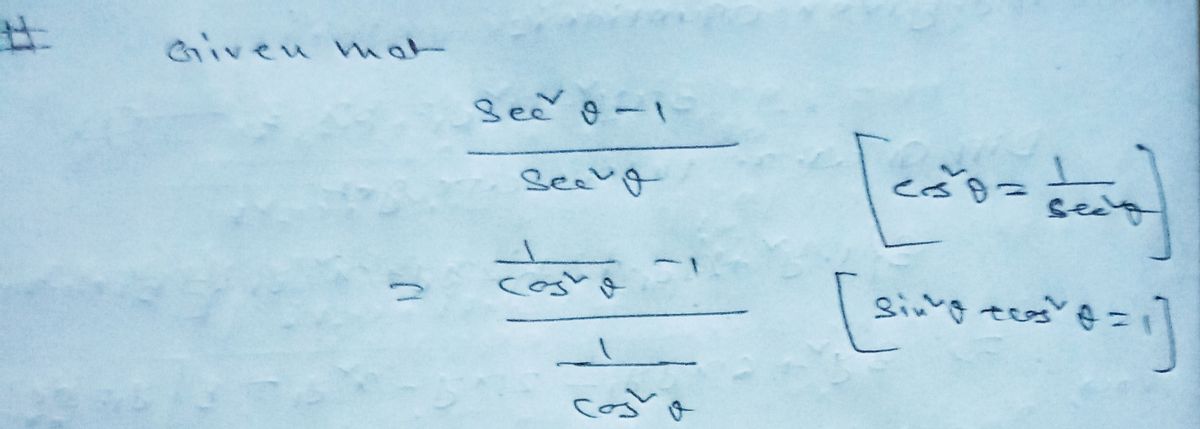 # Given that
sec² θ - 1
sec² θ
[cos² θ = 1 / sec² θ]
= 1 / cos² θ - 1
[sin² θ + cos² θ = 1]
1
cos² θ